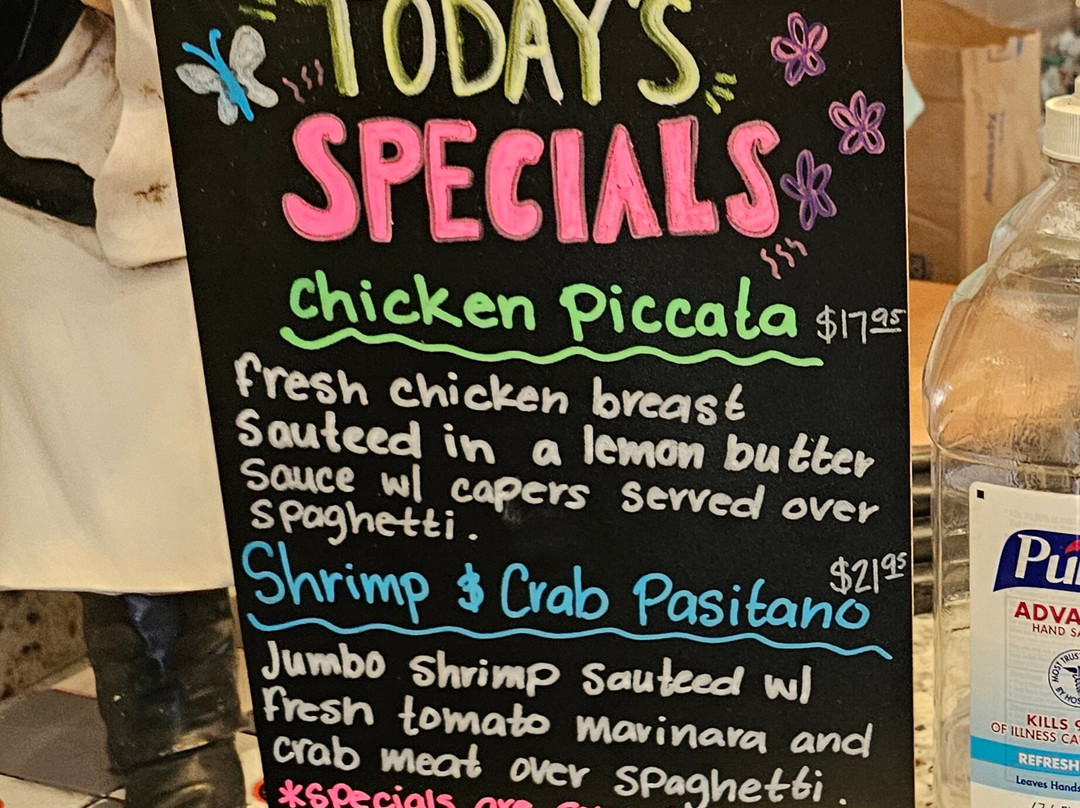 TODAY'S
SPECIALS
Chicken Piccata $17.95
fresh chicken breast
Sauteed in a lemon butter
Sauce w/ capers served over
Spaghetti.
Shrimp $ Crab Pasitano $21.95
Jumbo Shrimp Sauteed w/
fresh tomato marinara and
crab meat over spaghetti.
*specials are
Pu
ADVA
HAND SA
MOST TRUS
KILLS
OF ILLNESS CA
REFRESH
Leaves Hands